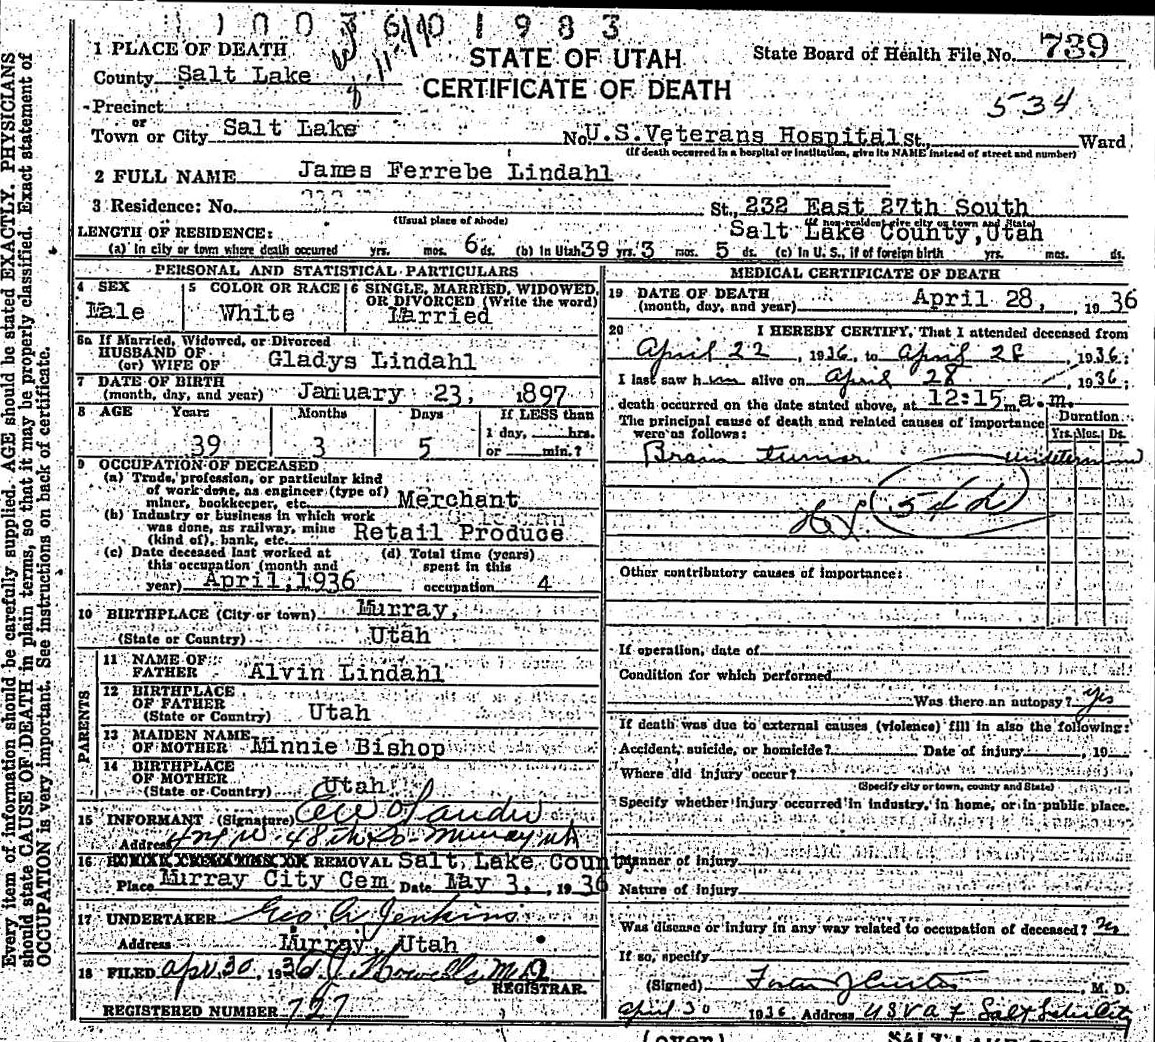 1 1 0 0 3 6 0 1 9 8 3
1 PLACE OF DEATH
STATE OF UTAH
CERTIFICATE OF DEATH
State Board of Health File No. 739
534
County Salt Lake
Precinct
or
Town or City Salt Lake No. U.S.Veterans Hospital St., Ward
(If death occurred in a hospital or institution, give its NAME instead of street and number)
2 FULL NAME James Ferrebe Lindahl
3 Residence: No. St., 232 East 27th South
(Usual place of abode) (If non-resident give city or town and State)
Salt Lake County, Utah
LENGTH OF RESIDENCE:
(a) In city or town where death occurred yrs. mos. 6 ds. (b) in Utah 39 yrs. 3 mos. 5 ds. (c) in U. S., if of foreign birth yrs. mos. ds.
PERSONAL AND STATISTICAL PARTICULARS
4 SEX
Male
5 COLOR OR RACE
White
6 SINGLE, MARRIED, WIDOWED, OR DIVORCED (Write the word)
Married
6a If Married, Widowed, or Divorced
HUSBAND OF
(or) WIFE OF Gladys Lindahl
7 DATE OF BIRTH
(month, day, and year) January 23, 1897
8 AGE Years Months Days If LESS than
1 day, hrs.
39 3 5 or min.?
9 OCCUPATION OF DECEASED
(a) Trade, profession, or particular kind
of work done, as engineer (type of)
miner, bookkeeper, etc. Merchant
(b) Industry or business in which work
was done, as railway, mine
(kind of), bank, etc. Retail Produce
(c) Date deceased last worked at
this occupation (month and
year) April, 1936
(d) Total time (years)
spent in this
occupation 4
10 BIRTHPLACE (City or town) Murray,
(State or Country) Utah
PARENTS
11 NAME OF
FATHER Alvin Lindahl
12 BIRTHPLACE
OF FATHER
(State or Country) Utah
13 MAIDEN NAME
OF MOTHER Minnie Bishop
14 BIRTHPLACE
OF MOTHER
(State or Country) Utah
15 INFORMANT (Signature)
Address W. 48th So - Murray ut
16 REMOVAL Salt Lake County
Place Murray City Cem Date May 3, , 19 36
17 UNDERTAKER Geo A Jenkins
Address Murray, Utah
18 FILED apr. 30, 1936 M.D.
REGISTRAR.
REGISTERED NUMBER 727
MEDICAL CERTIFICATE OF DEATH
19 DATE OF DEATH
(month, day, and year) April 28, , 19 36
20 I HEREBY CERTIFY, That I attended deceased from
April 22, 1936, to April 28, 1936;
I last saw him alive on April 28, 1936;
death occurred on the date stated above, at 12:15 m. a.m.
The principal cause of death and related causes of importance
were as follows:
Duration
Yrs. Mos. Ds.
Brain tumor
Other contributory causes of importance:
If operation, date of
Condition for which performed
Was there an autopsy? yes
If death was due to external causes (violence) fill in also the following:
Accident, suicide, or homicide? Date of injury , 19
Where did injury occur?
(Specify city or town, county and State)
Specify whether injury occurred in industry, in home, or in public place.
Manner of injury
Nature of injury
Was disease or injury in any way related to occupation of deceased? no
If so, specify
(Signed) M. D.
April 30 1936 Address Salt Lake City
(over)
Every item of information should be carefully supplied. AGE should be stated EXACTLY. PHYSICIANS
should state CAUSE OF DEATH in plain terms, so that it may be properly classified. Exact statement of
OCCUPATION is very important. See instructions on back of certificate.